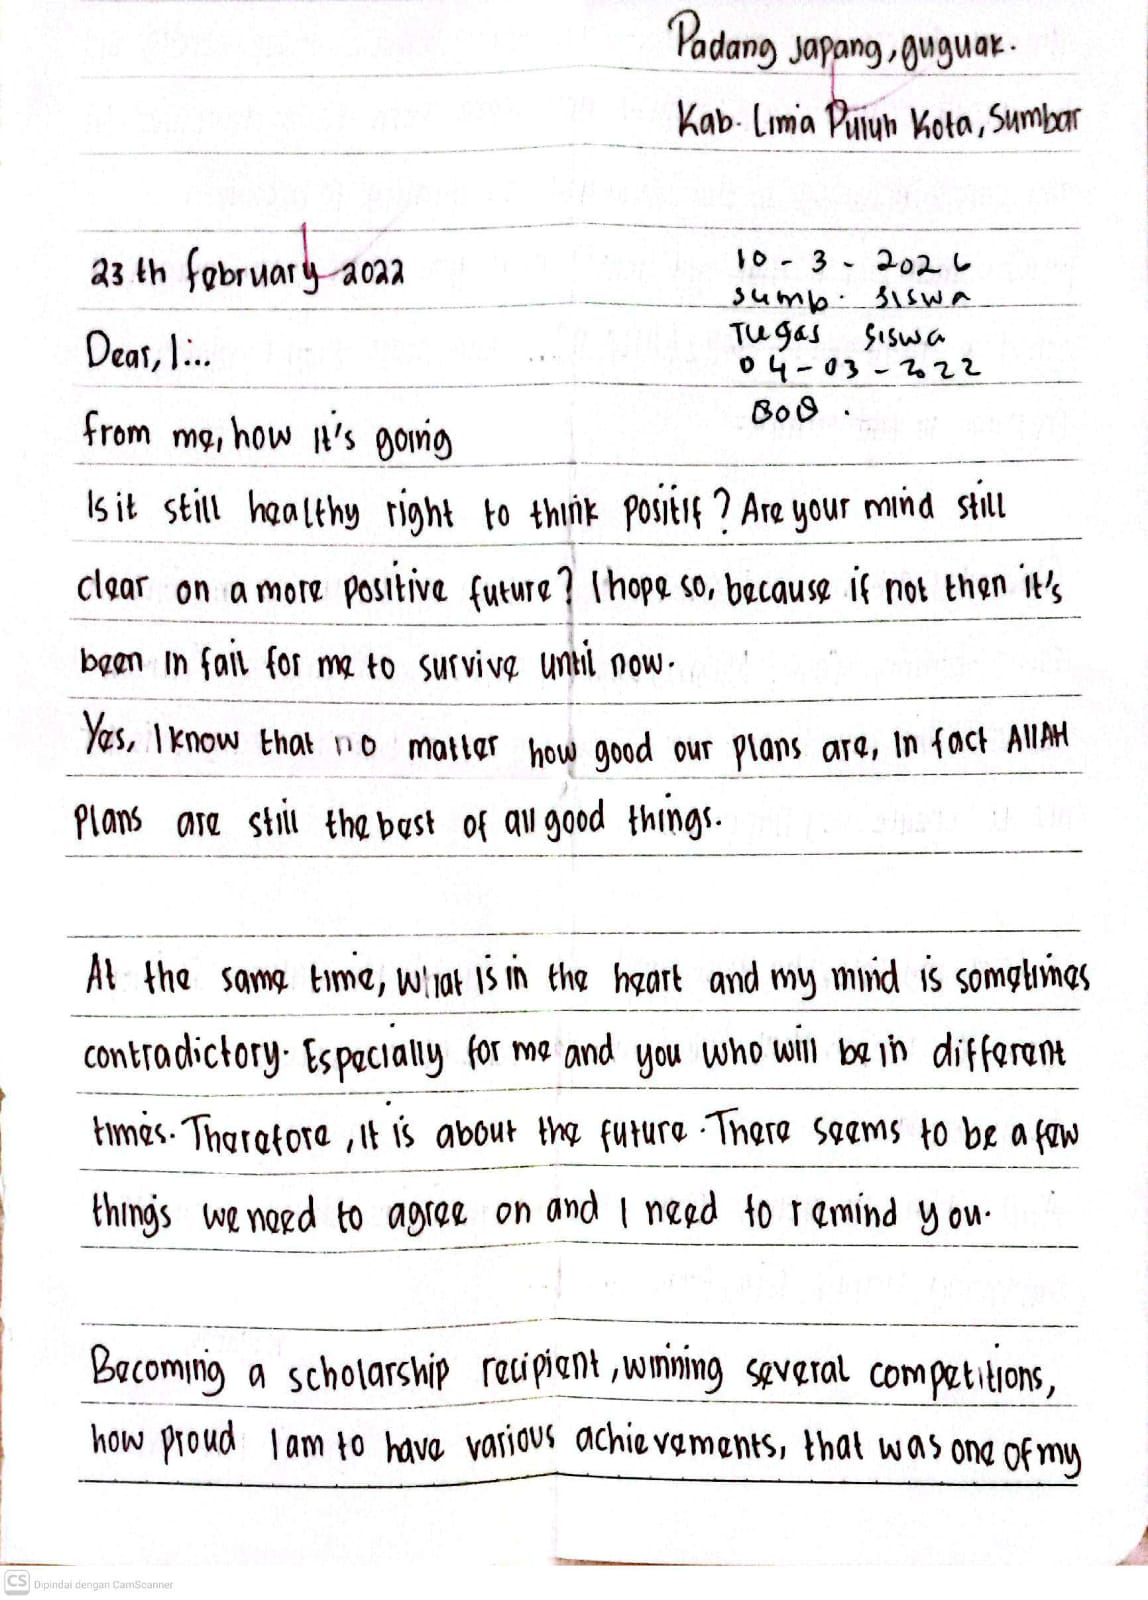 Padang Japang, guguak.
Kab. Lima Puluh Kota, Sumbar
23 th february 2022
10 - 3 - 2026
sumb. siswa
Tugas siswa
04-03-2022
BOS.
Dear, I...
from me, how it's going
Is it still healthy right to think positif? Are your mind still
clear on a more positive future? I hope so, because if not then it's
been in fail for me to survive until now.
Yes, I know that no matter how good our plans are, in fact AllAH
plans are still the best of all good things.
At the same time, what is in the heart and my mind is sometimes
contradictory. Especially for me and you who will be in different
times. Therefore, it is about the future. There seems to be a few
things we need to agree on and I need to remind you.
Becoming a scholarship recipient, winning several competitions,
how proud I am to have various achievements, that was one of my
CS Dipindai dengan CamScanner